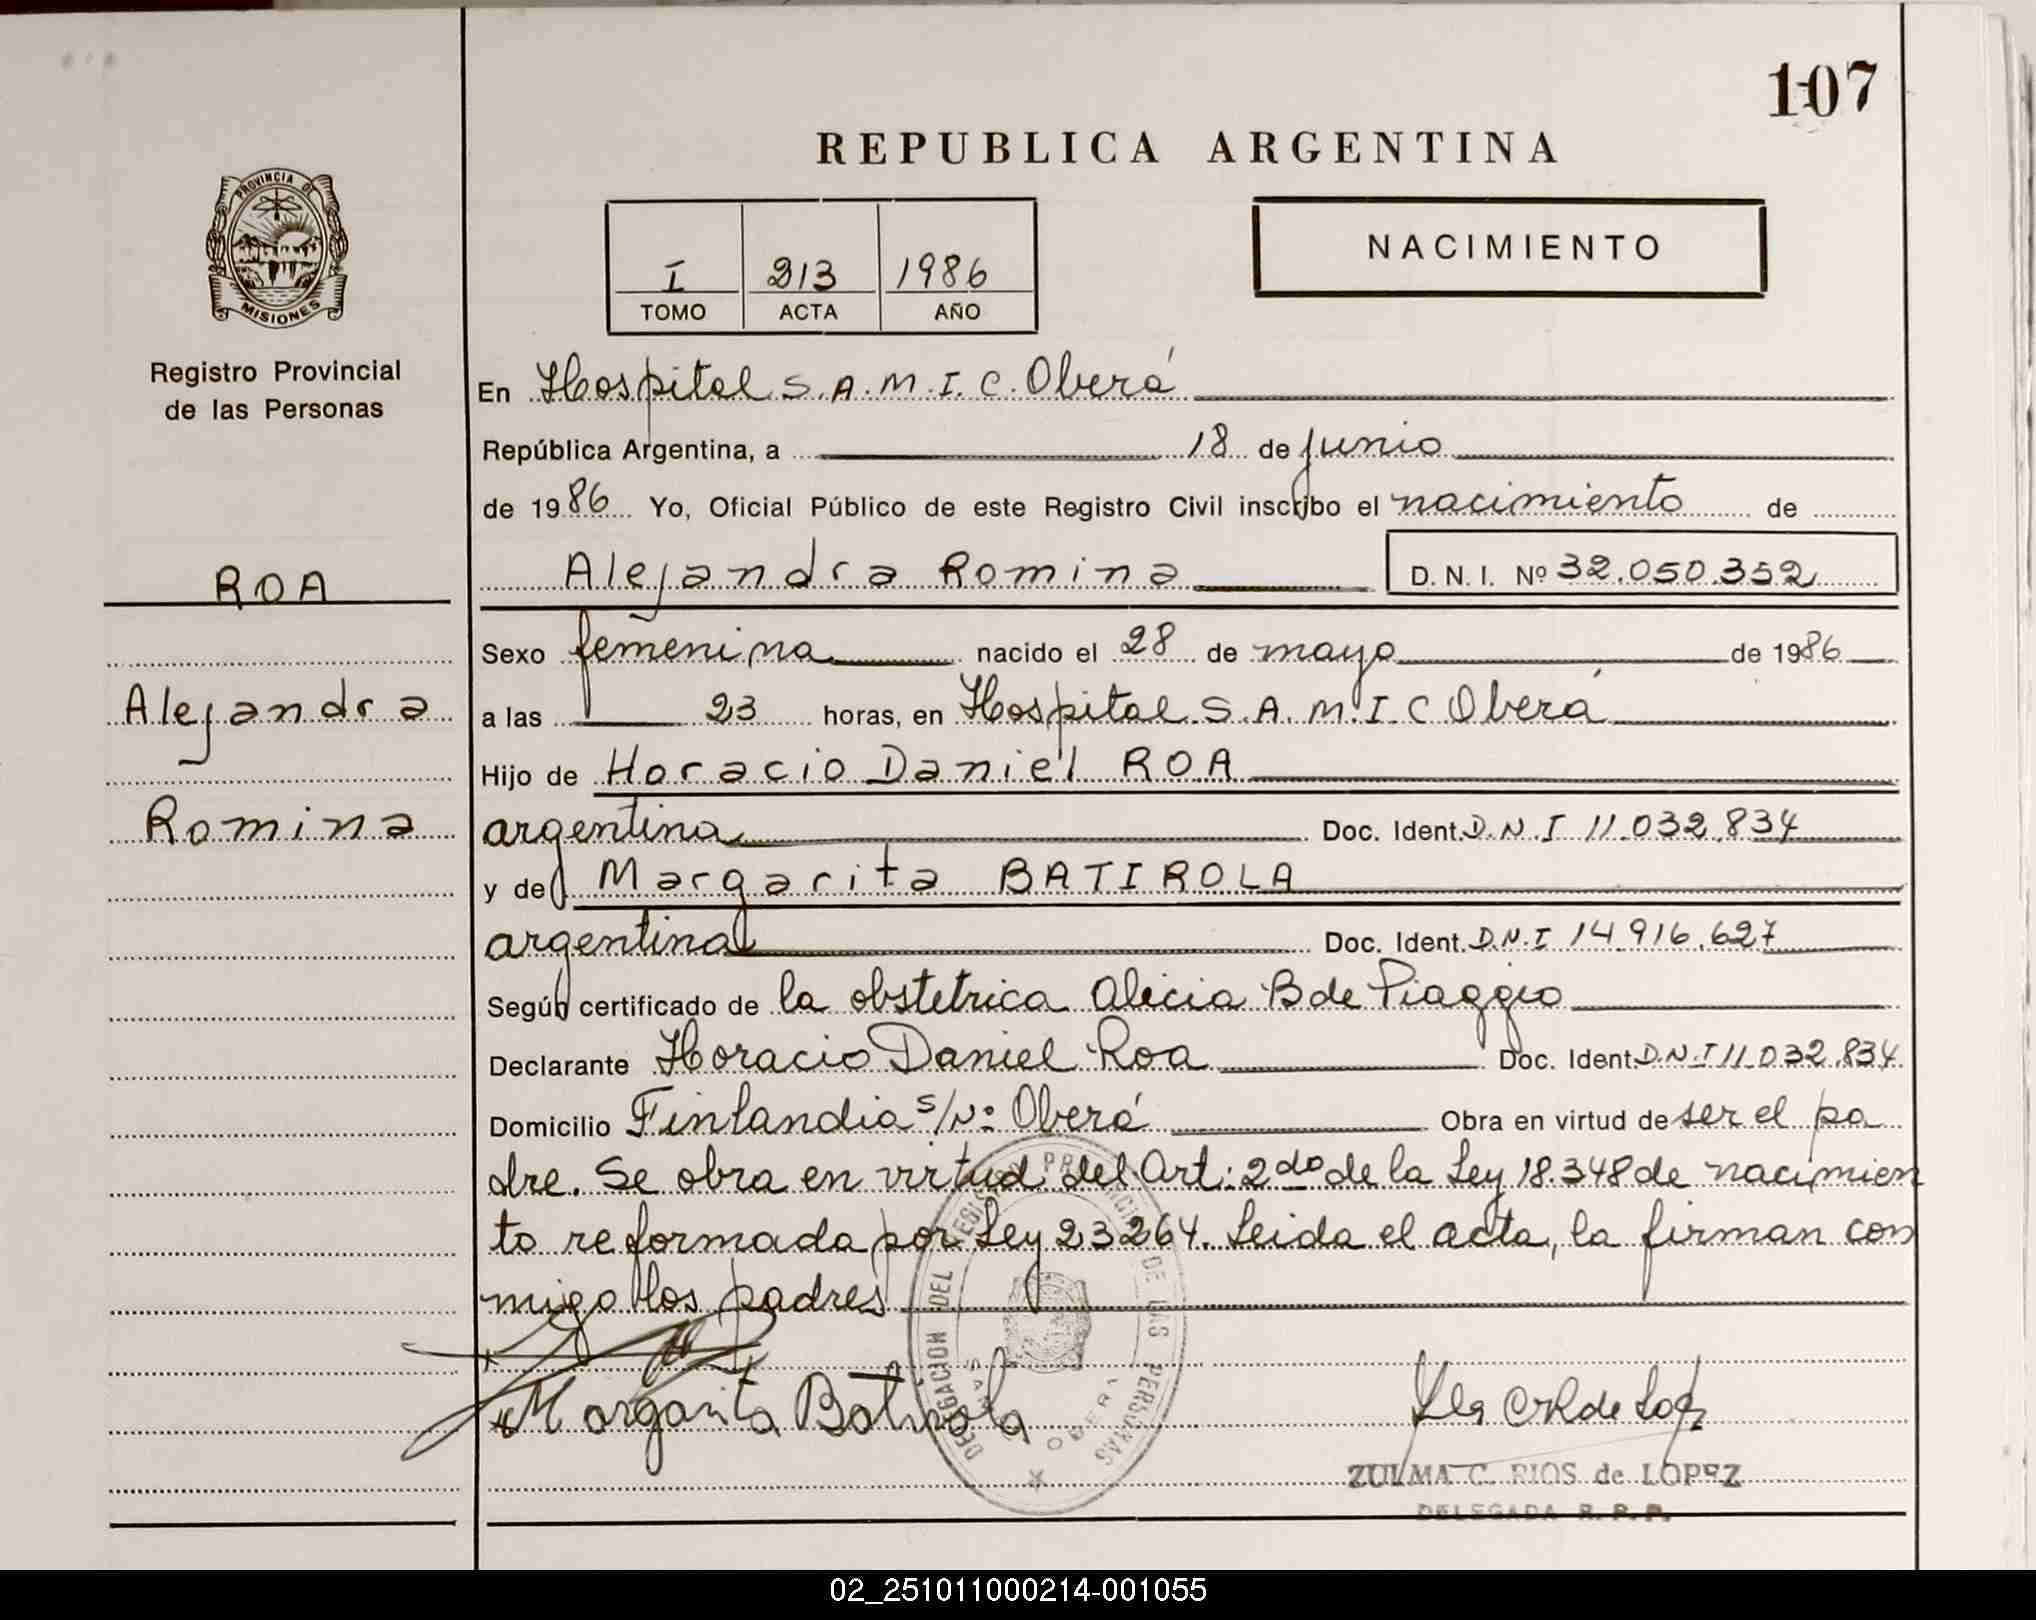 107
REPUBLICA ARGENTINA
PROVINCIA DE
MISIONES
Registro Provincial
de las Personas
I 213 1986
TOMO ACTA AÑO
NACIMIENTO
En Hospital S.A.M.I.C. Oberá
República Argentina, a 18 de junio
de 1986 Yo, Oficial Público de este Registro Civil inscribo el nacimiento de
ROA
Alejandra Romina D. N. I. Nº 32.050.352
Sexo femenina nacido el 28 de mayo de 1986
Alejandra
a las 23 horas, en Hospital S.A.M.I.C Oberá
Hijo de Horacio Daniel ROA
Romina
argentina Doc. Ident. D.N.I 11.032.834
y de Margarita BATIROLA
argentina Doc. Ident. D.N.I 14.916.627
Según certificado de la obstetrica Alicia B de Piaggio
Declarante Horacio Daniel Roa Doc. Ident. D.N.I 11.032.834
Domicilio Finlandia s/Nº Oberá Obra en virtud de ser el pa
dre. Se obra en virtud del Art: 2do de la Ley 18.348 de nacimien
to reformada por Ley 23264. Leida el acta, la firman con
migo los padres
Margarita Batirola
DELEGACION DEL REGISTRO PROVINCIAL DE LAS PERSONAS
OBERA
ZULMA C. RIOS de LOPEZ
DELEGADA R. P. P.
02_251011000214-001055